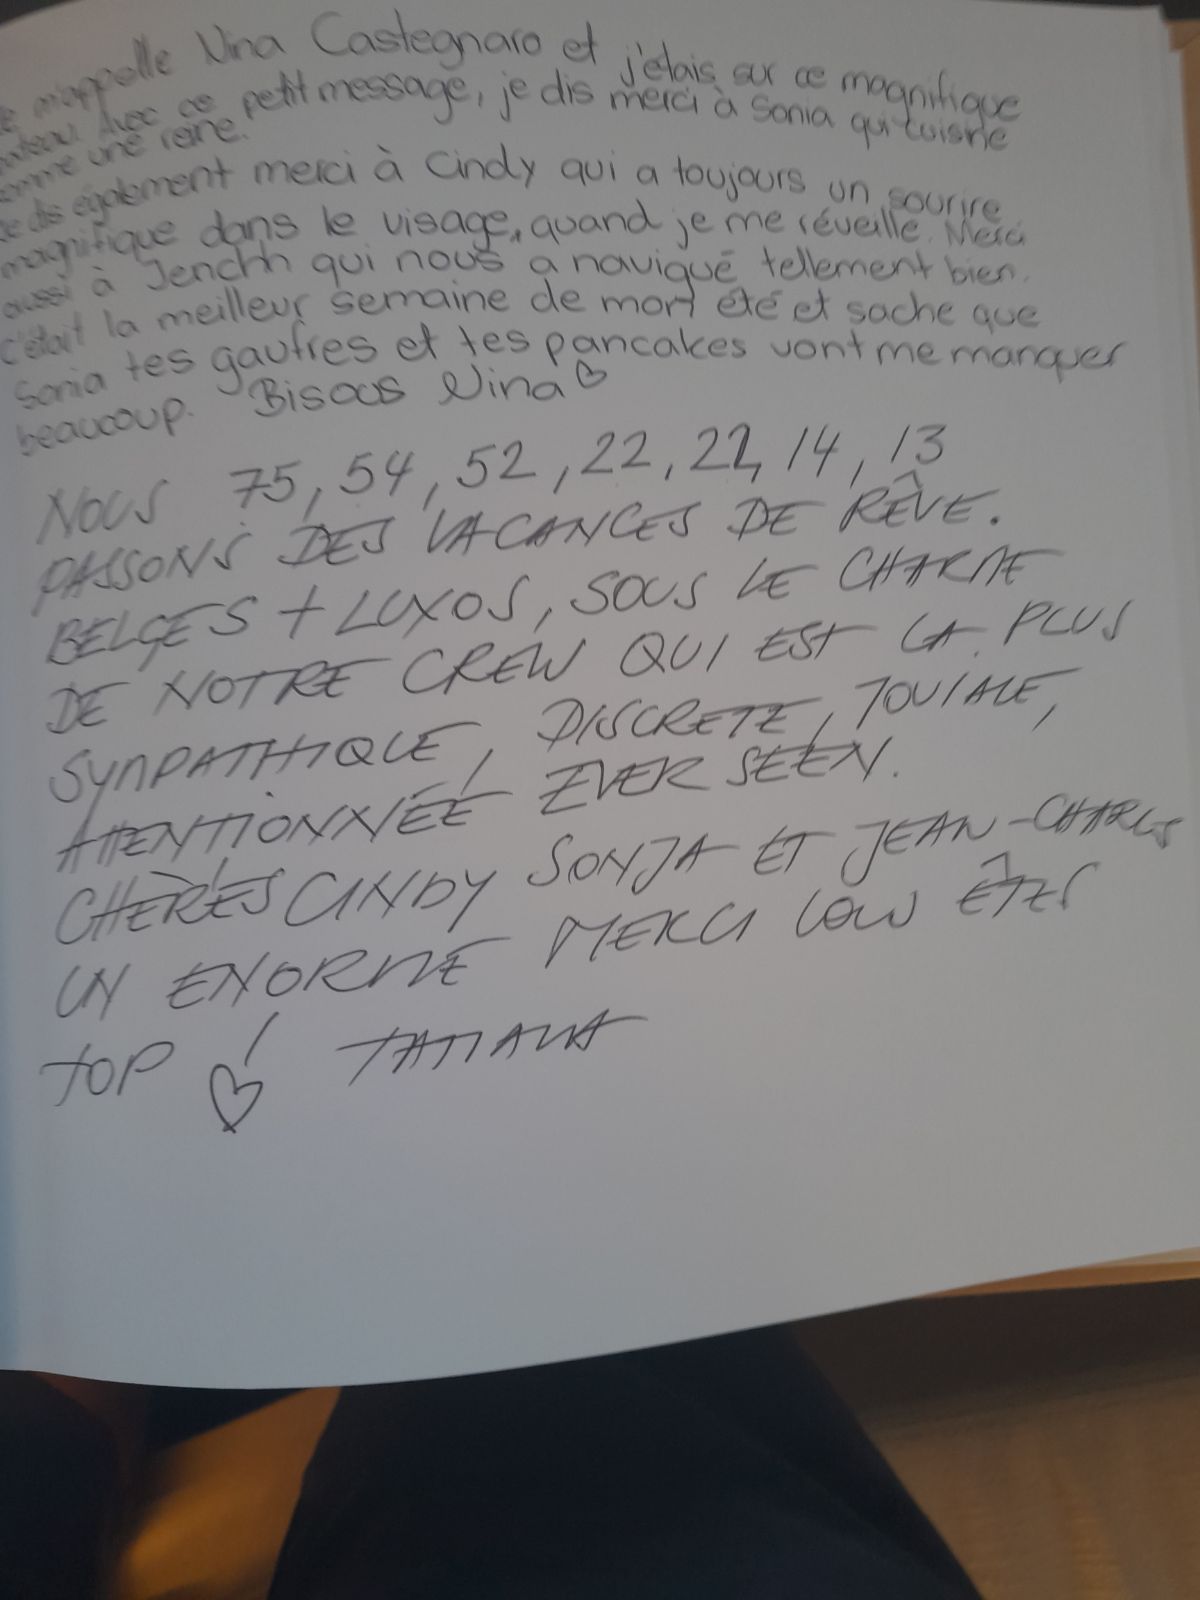 m'appelle Nina Castegnaro et j'étais sur ce magnifique
bateau. Avec ce petit message, je dis merci à Sonia qui cuisine
comme une reine.
Je dis également merci à Cindy qui a toujours un sourire
magnifique dans le visage, quand je me réveille. Merci
aussi à qui nous a navigué tellement bien.
c'était la meilleur semaine de mon été et sache que
Sonia tes gaufres et tes pancakes vont me manquer
beaucoup. Bisous Nina ♡
NOUS 75, 54, 52, 22, 22, 14, 13
PASSONS DES VACANCES DE RÊVE.
BELGES + LUXOS, SOUS LE CHARME
DE NOTRE CREW QUI EST LA PLUS
SYMPATHIQUE, DISCRETE, JOVIALE,
ATTENTIONNÉE EVER SEEN.
CHÈRES CINDY SONJA ET JEAN-CHARLES
UN ENORME MERCI ÊTES
TOP ! ♡ TATIANA